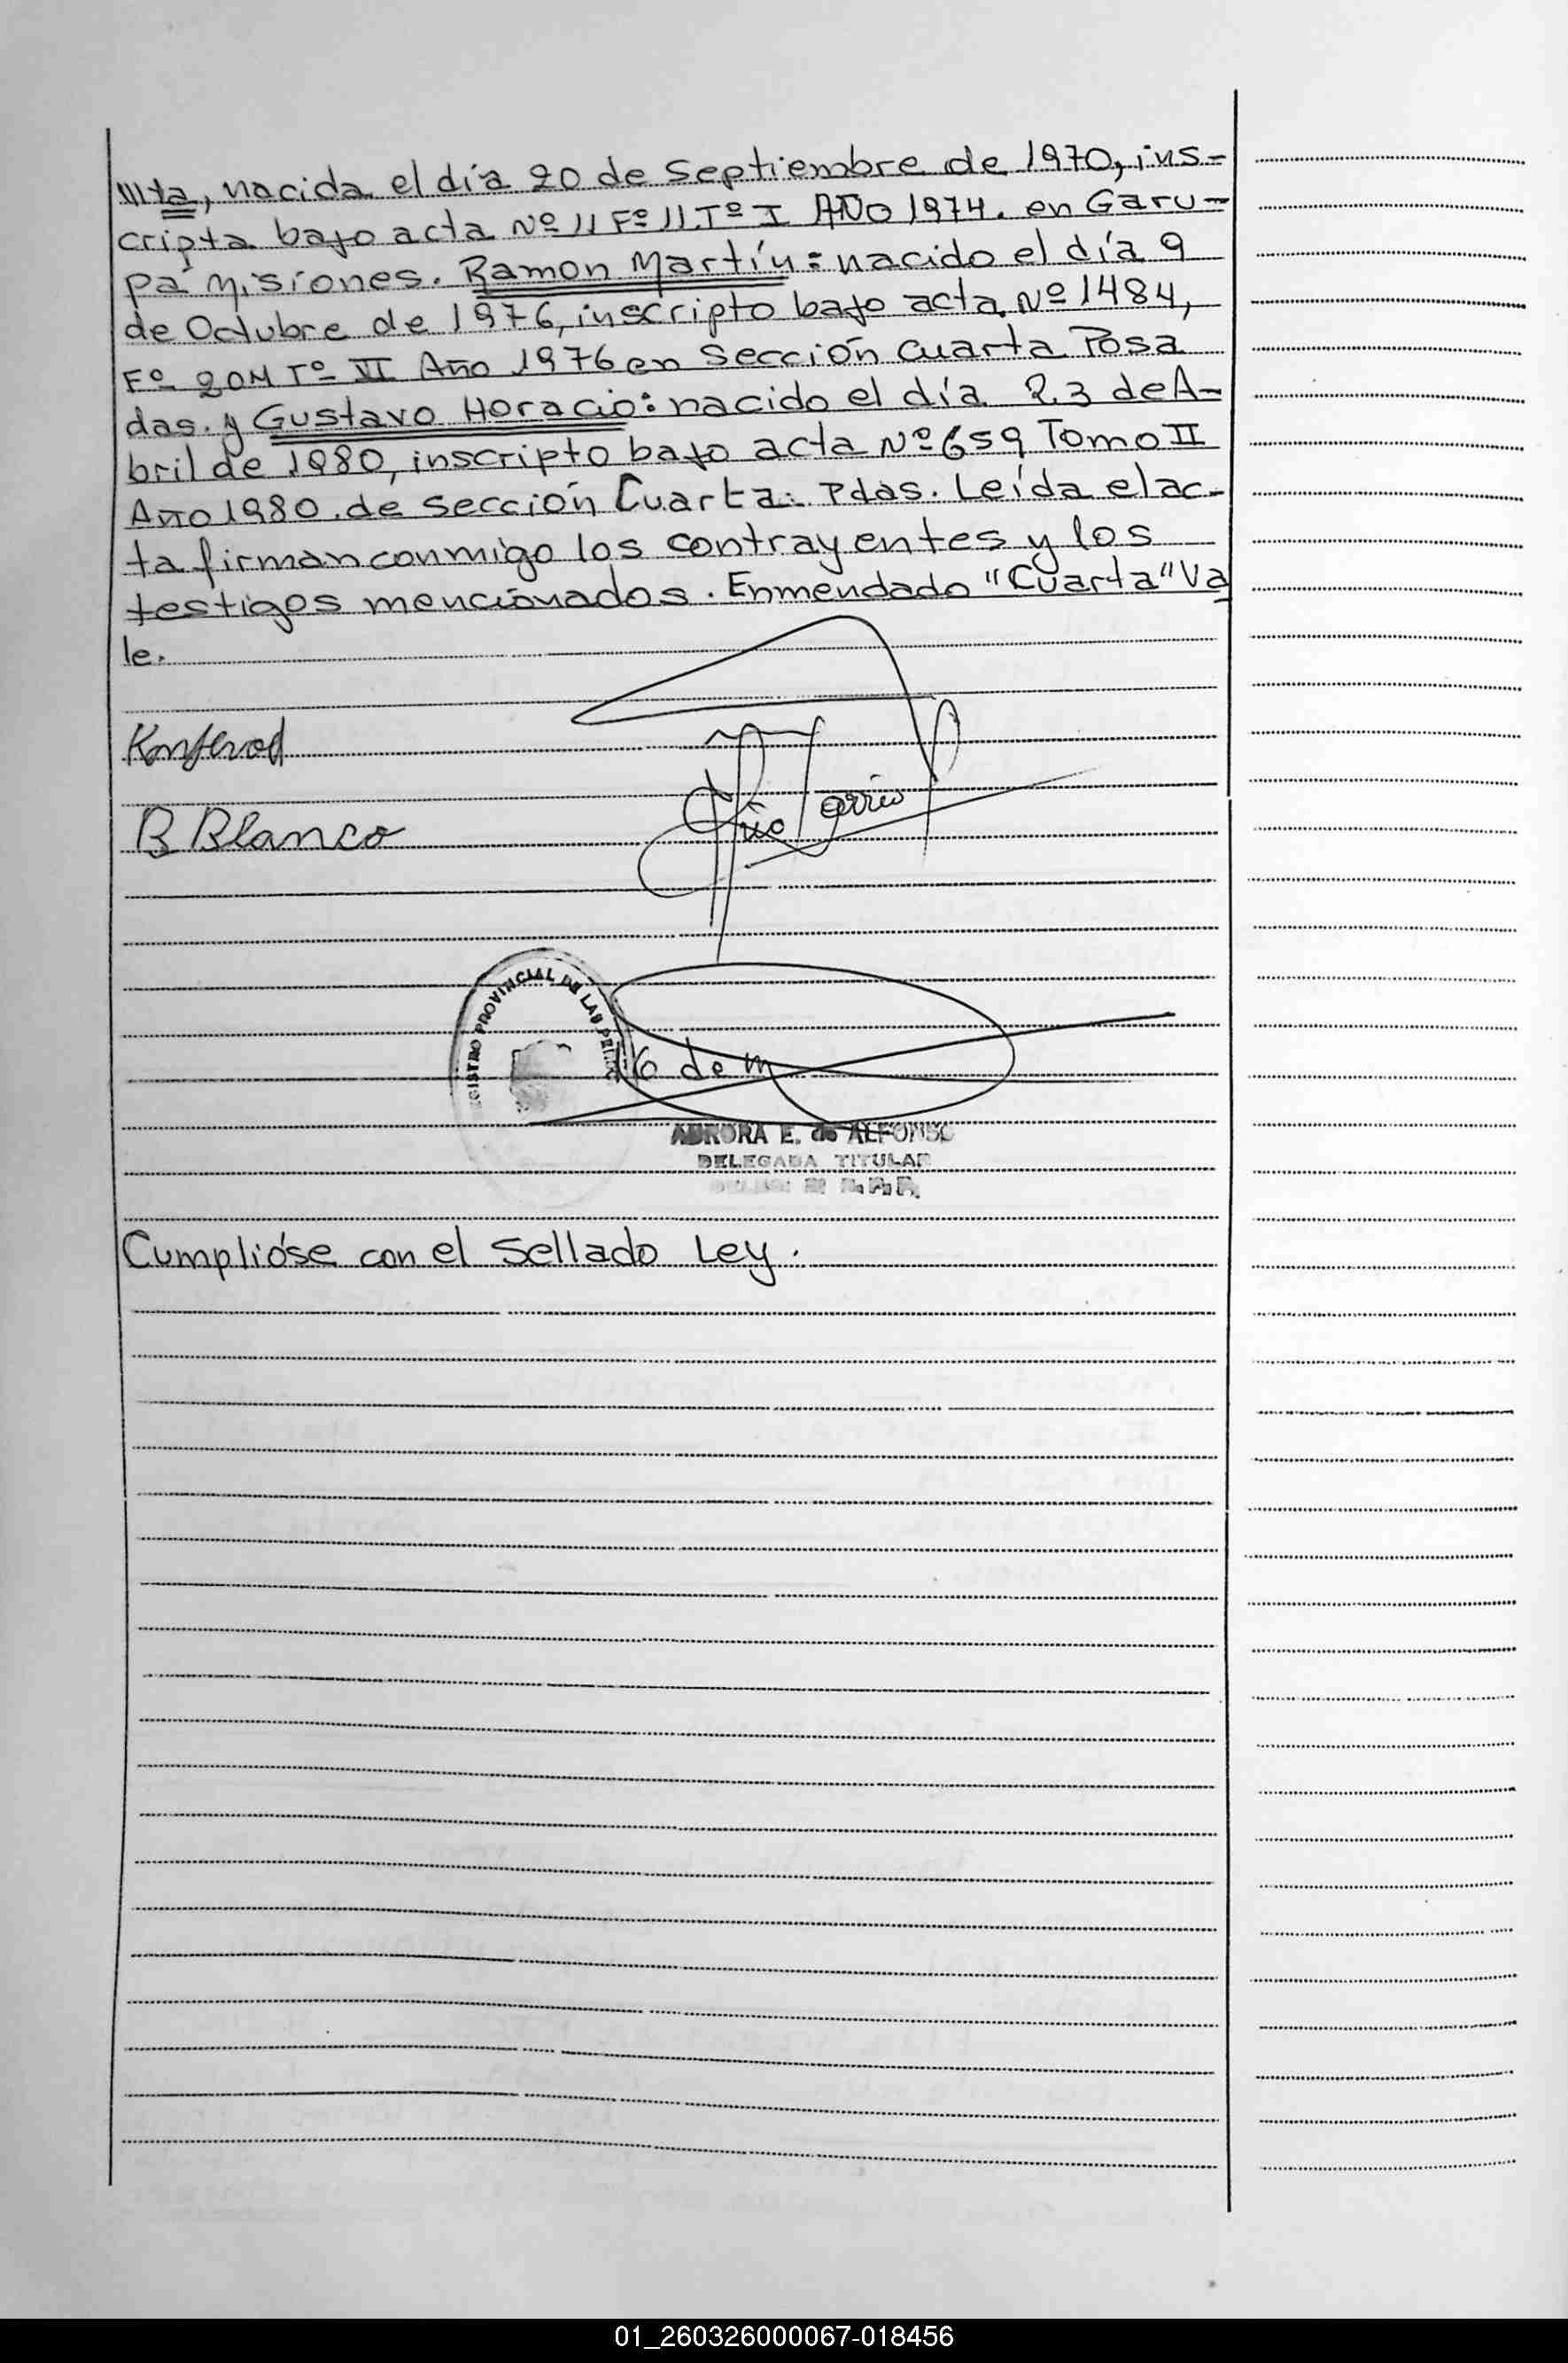 \\\ta, nacida el día 20 de Septiembre de 1970, ins=
cripta bajo acta Nº 11 Fº 11. Tº I AÑO 1974. en Garu=
pá Misiones. Ramon Martín: nacido el día 9
de Octubre de 1976, inscripto bajo acta. Nº 1484,
Fº 204 Tº VI Año 1976 en Sección Cuarta Posa
das. y Gustavo Horacio: nacido el día 23 de A-
bril de 1980, inscripto bajo acta Nº 659 Tomo II
Año 1980. de sección Cuarta. Pdas. Leída el ac-
ta firman conmigo los contrayentes y los
testigos mencionados. Enmendado "Cuarta" Va
le.
B Blanco
REGISTRO PROVINCIAL DE LAS
AURORA E. de ALFONSO
DELEGADA TITULAR
R.P.P.
Cumplióse con el Sellado Ley.
01_260326000067-018456